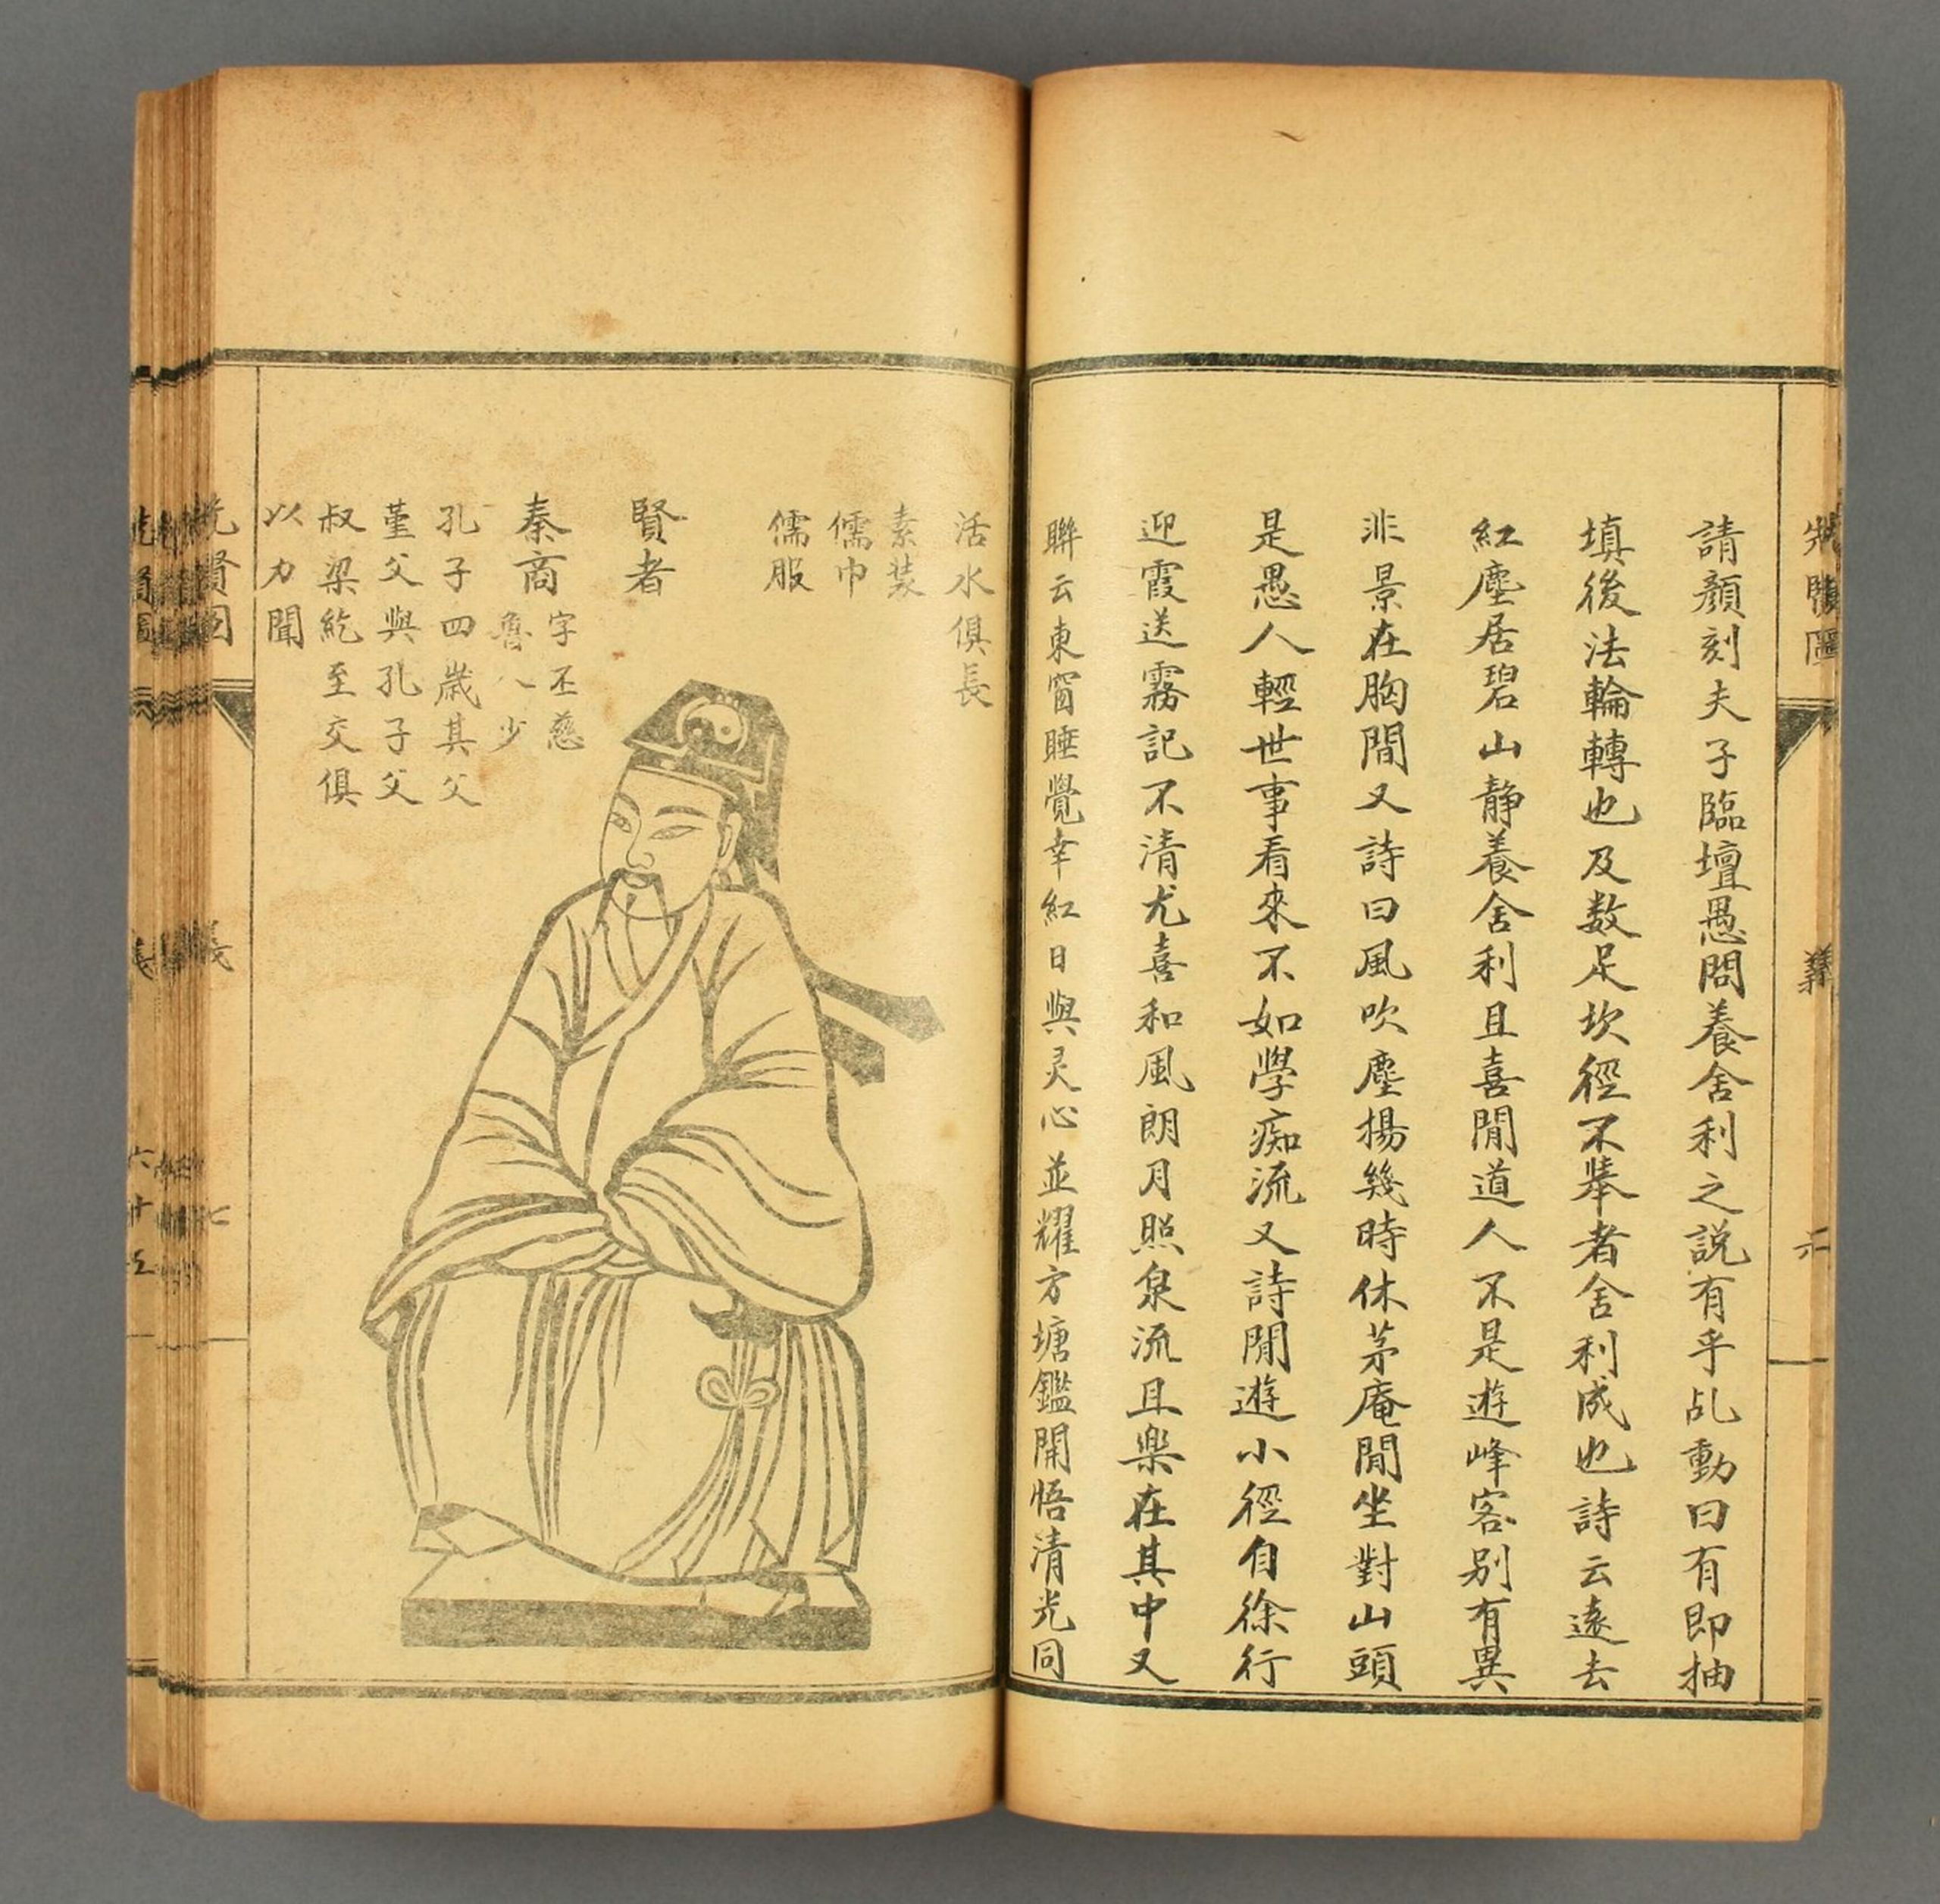 請顏刻夫子臨壇愚問養舍利之説有乎乩動曰有即抽
填後法輪轉也及数足坎徑不舉者舍利成也詩云遠去
紅塵居碧山靜養舍利且喜閒道人不是遊峰客别有異
非景在胸間又詩曰風吹塵揚幾時休茅庵閒坐對山頭
是愚人輕世事看來不如學痴流又詩閒遊小徑自徐行
迎霞送霧記不清尤喜和風朗月照泉流且樂在其中又
聯云東窗睡覺幸紅日與灵心並耀方塘鑑開悟清光同
活水俱長
素裝
儒巾
儒服
賢者
秦商
字丕慈
魯人少
孔子四歲其父
堇父與孔子父
叔梁紇至交俱
以力聞
先賢圖
義
七